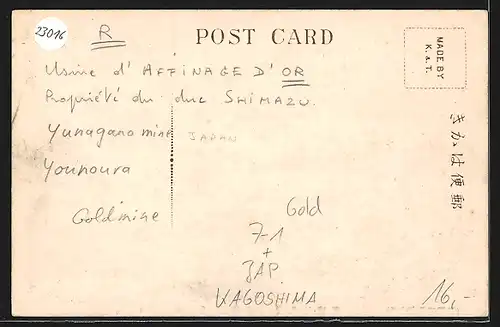 23016
R
POST CARD
MADE BY
K. & T.
Usine d' AFFINAGE D' OR
Propriété du duc SHIMAZU.
Yunagano mine
JAPAN
Younoura
Goldmine
Gold
7-1
+
JAP.
KAGOSHIMA
16,-
きかは便郵